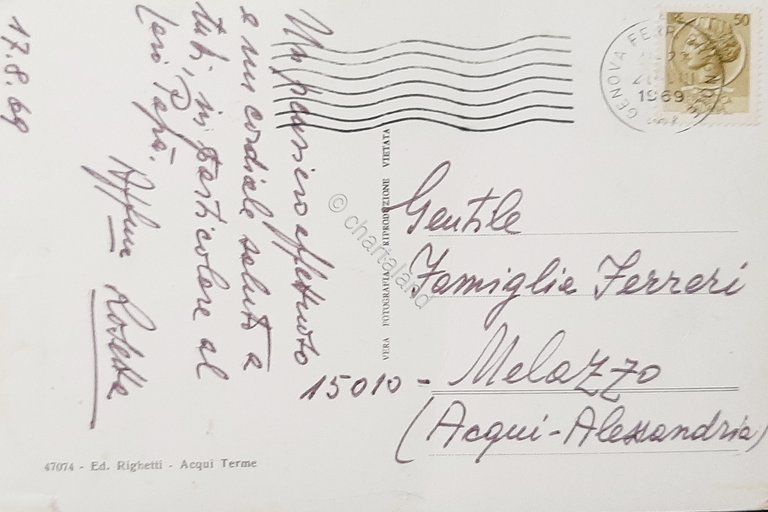 17.8.69
Un pensiero affettuoso
e un cordiale saluto a
tutti, in particolare al
Papà.
GENOVA FERR
1969
50
Gentile
Famiglia Ferrari
15010 - Melazzo
(Acqui-Alessandria)
VERA FOTOGRAFIA RIPRODUZIONE VIETATA
© chartaland
47074 - Ed. Righetti - Acqui Terme